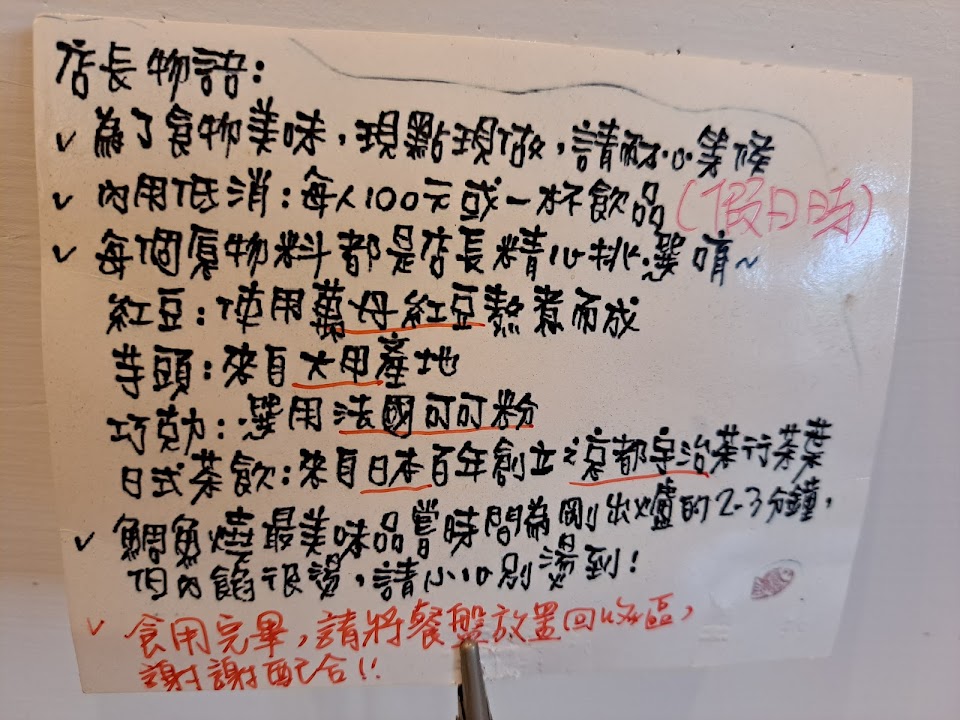 店長物語:
✓ 為了食物美味,現點現做,請耐心等候
✓ 內用低消:每人100元或一杯飲品(假日時)
✓ 每個原物料都是店長精心挑選唷~
紅豆:使用萬丹紅豆熬煮而成
芋頭:來自大甲產地
巧克力:選用法國可可粉
日式茶飲:來自日本百年創立之京都宇治茶行茶葉
✓ 鯛魚燒最美味品嘗時間為剛出爐的2-3分鐘,
但內餡很燙,請小心別燙到!
✓ 食用完畢,請將餐盤放置回收區,
謝謝配合!!